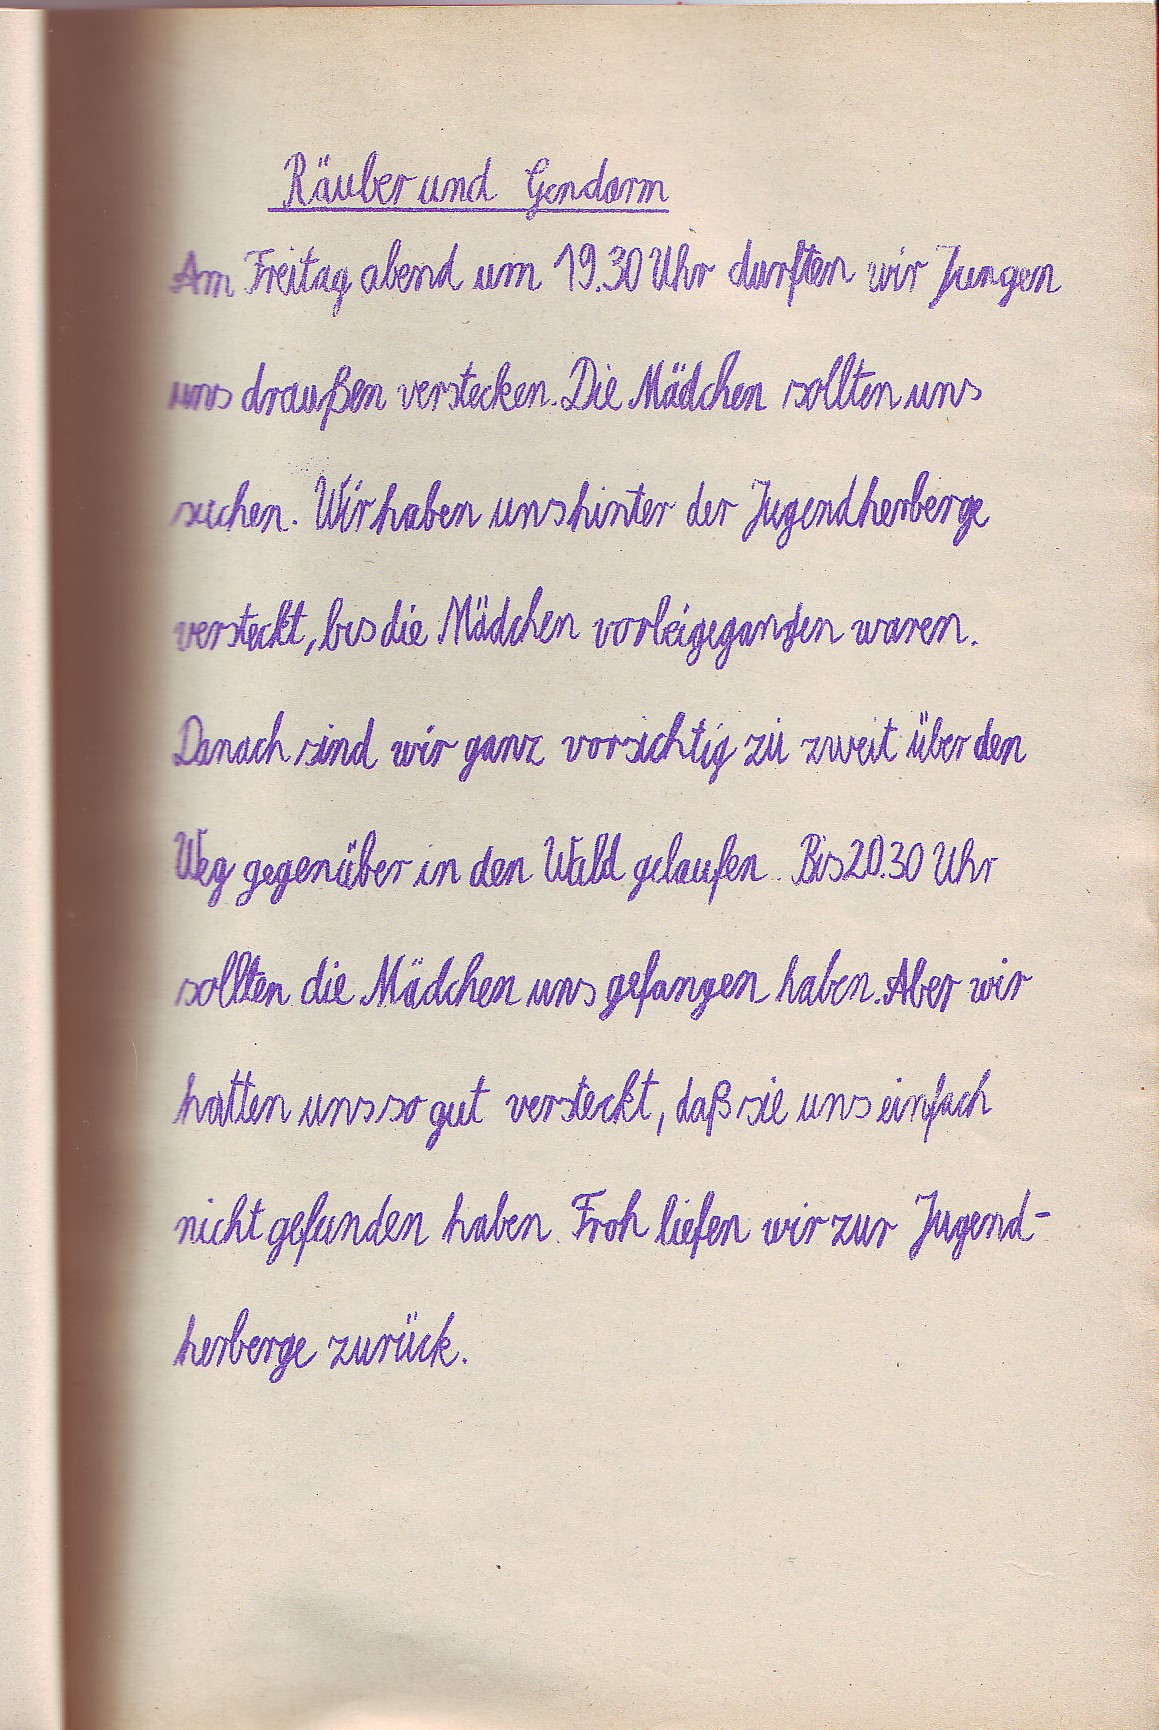 Räuber und Gendarm
Am Freitag abend um 19.30 Uhr durften wir Jungen
uns draußen verstecken. Die Mädchen sollten uns
suchen. Wir haben uns hinter der Jugendherberge
versteckt, bis die Mädchen vorbeigegangen waren.
Danach sind wir ganz vorsichtig zu zweit über den
Weg gegenüber in den Wald gelaufen. Bis 20.30 Uhr
sollten die Mädchen uns gefangen haben. Aber wir
hatten uns so gut versteckt, daß sie uns einfach
nicht gefunden haben. Froh liefen wir zur Jugend-
herberge zurück.